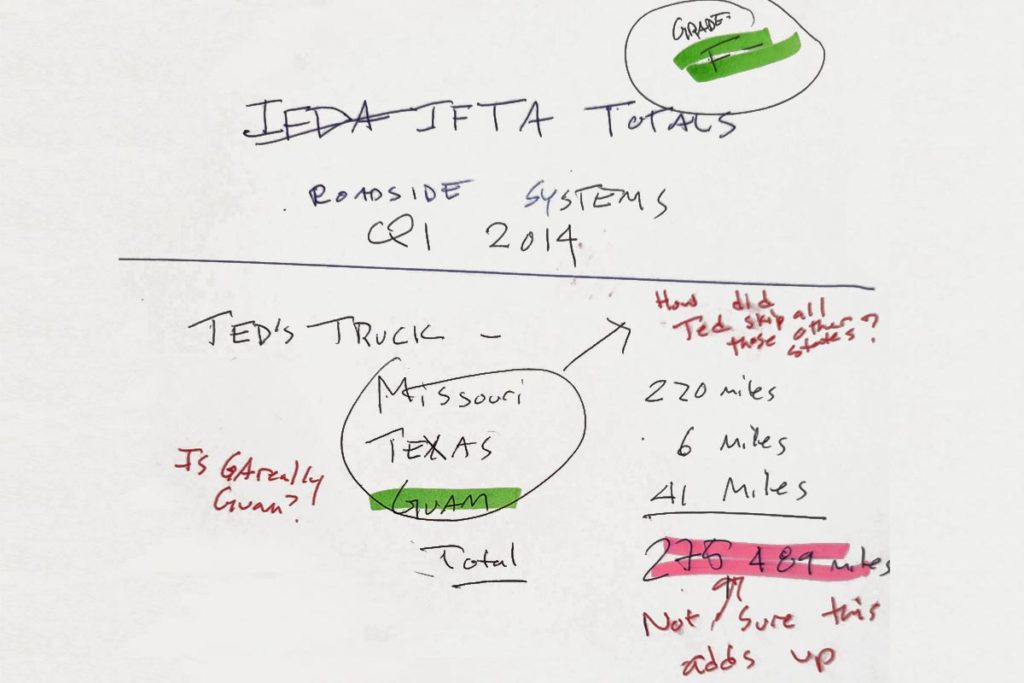 GRADE:
F-
IFDA IFTA TOTALS
ROADSIDE SYSTEMS
Q1 2014
How did
Ted skip all
those other
states?
TED'S TRUCK -
Missouri 220 miles
TEXAS 6 miles
Is GA really
Guam?
GUAM 41 Miles
Total 275 489 miles
Not sure this
adds up